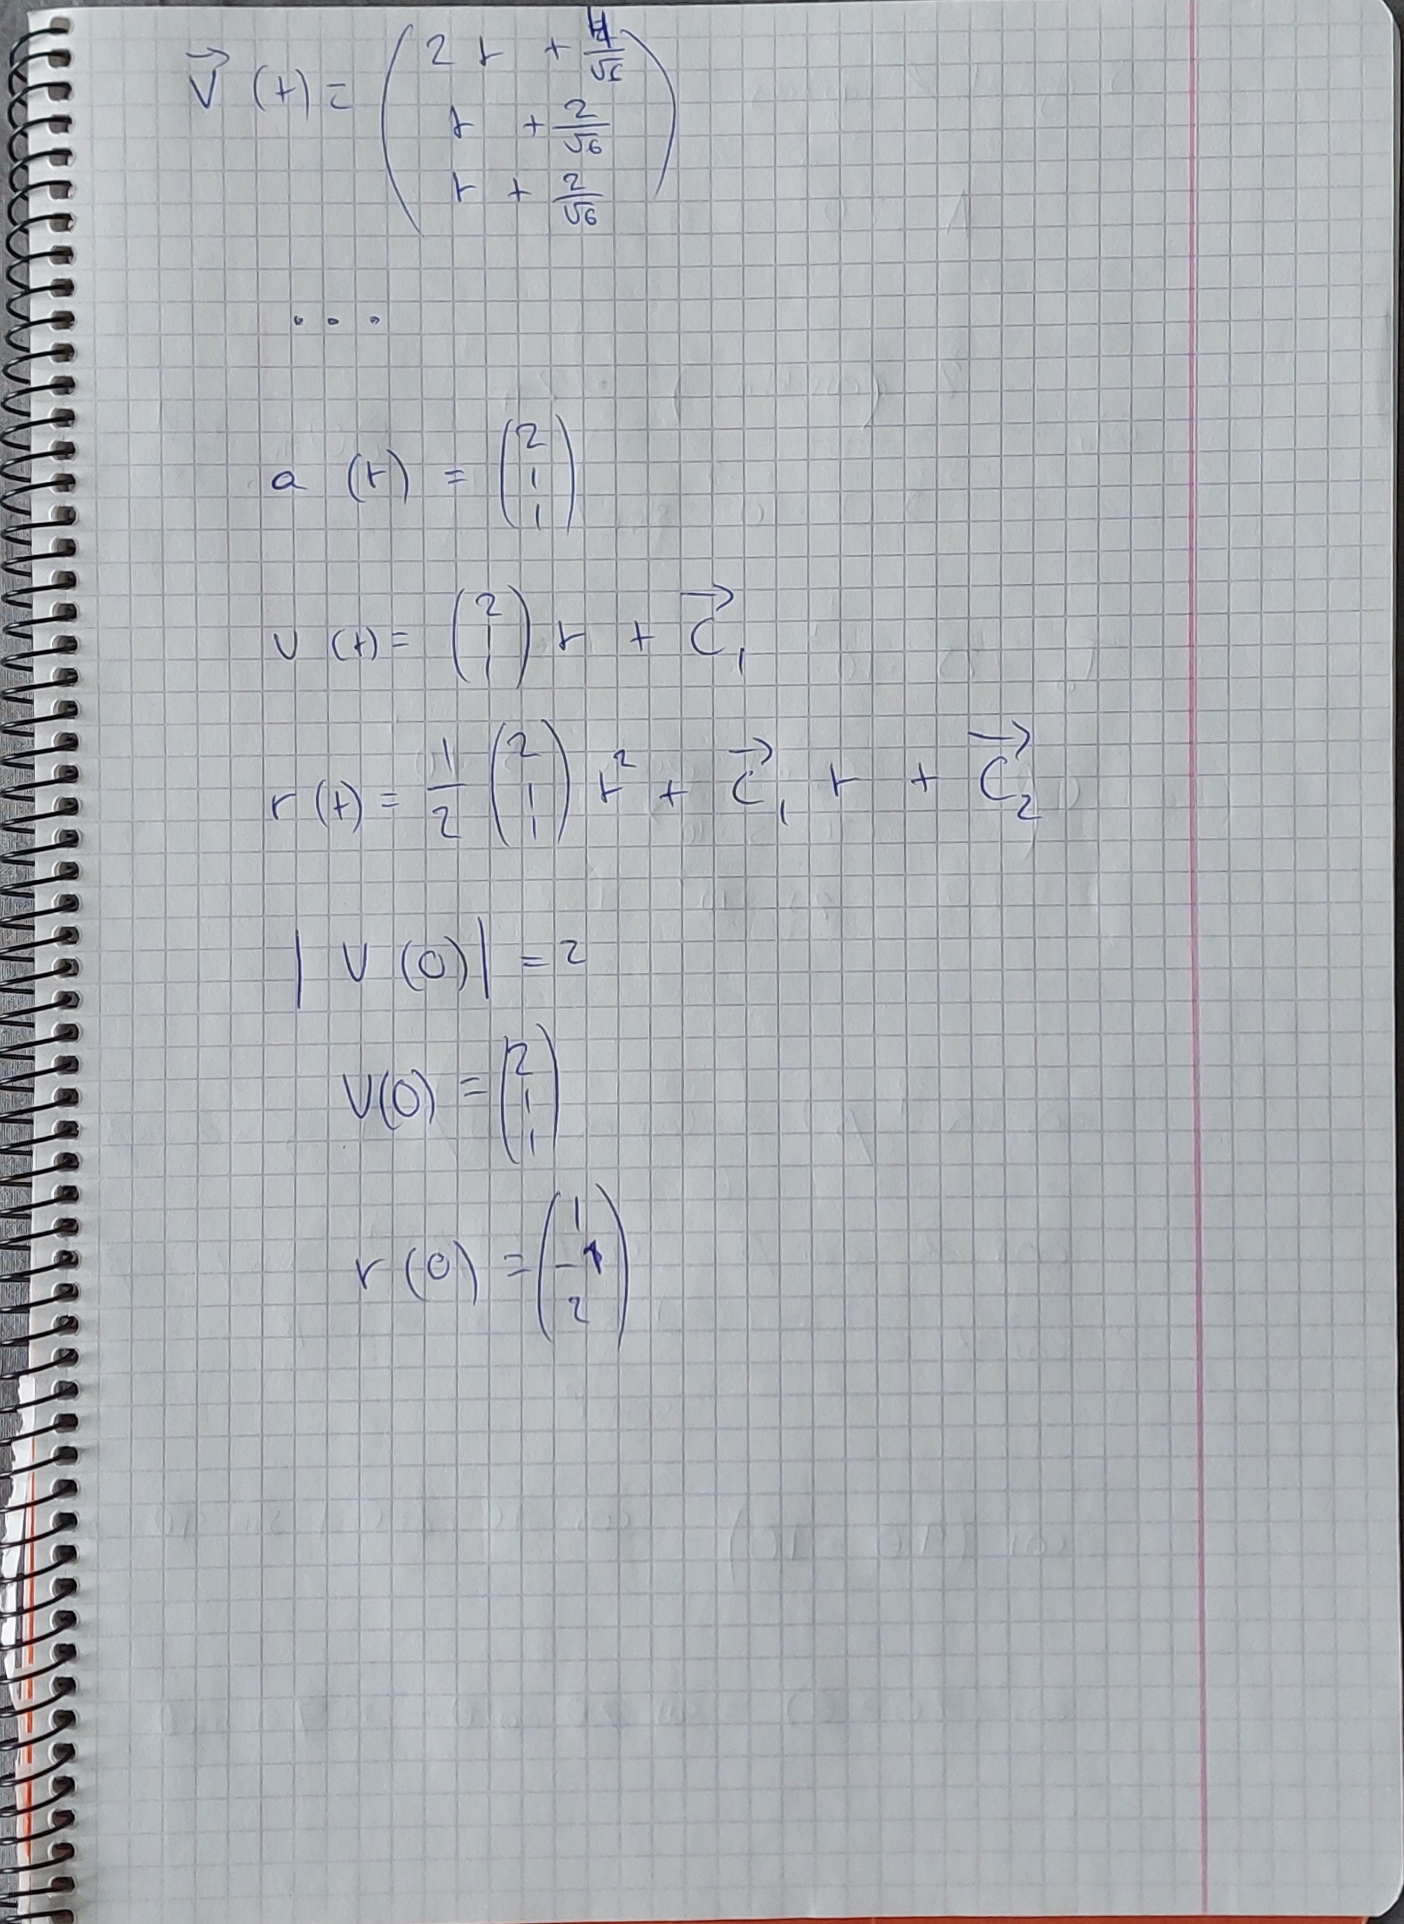 v⃗ (t) = (2t + 4/√6
t + 2/√6
t + 2/√6)
...
a (t) = (2 1 1)
v (t) = (2 1 1) t + C⃗₁
r (t) = 1/2 (2 1 1) t² + C⃗₁ t + C⃗₂
| v (0) | = 2
v(0) = (2 1 1)
r (0) = (1 -1 2)